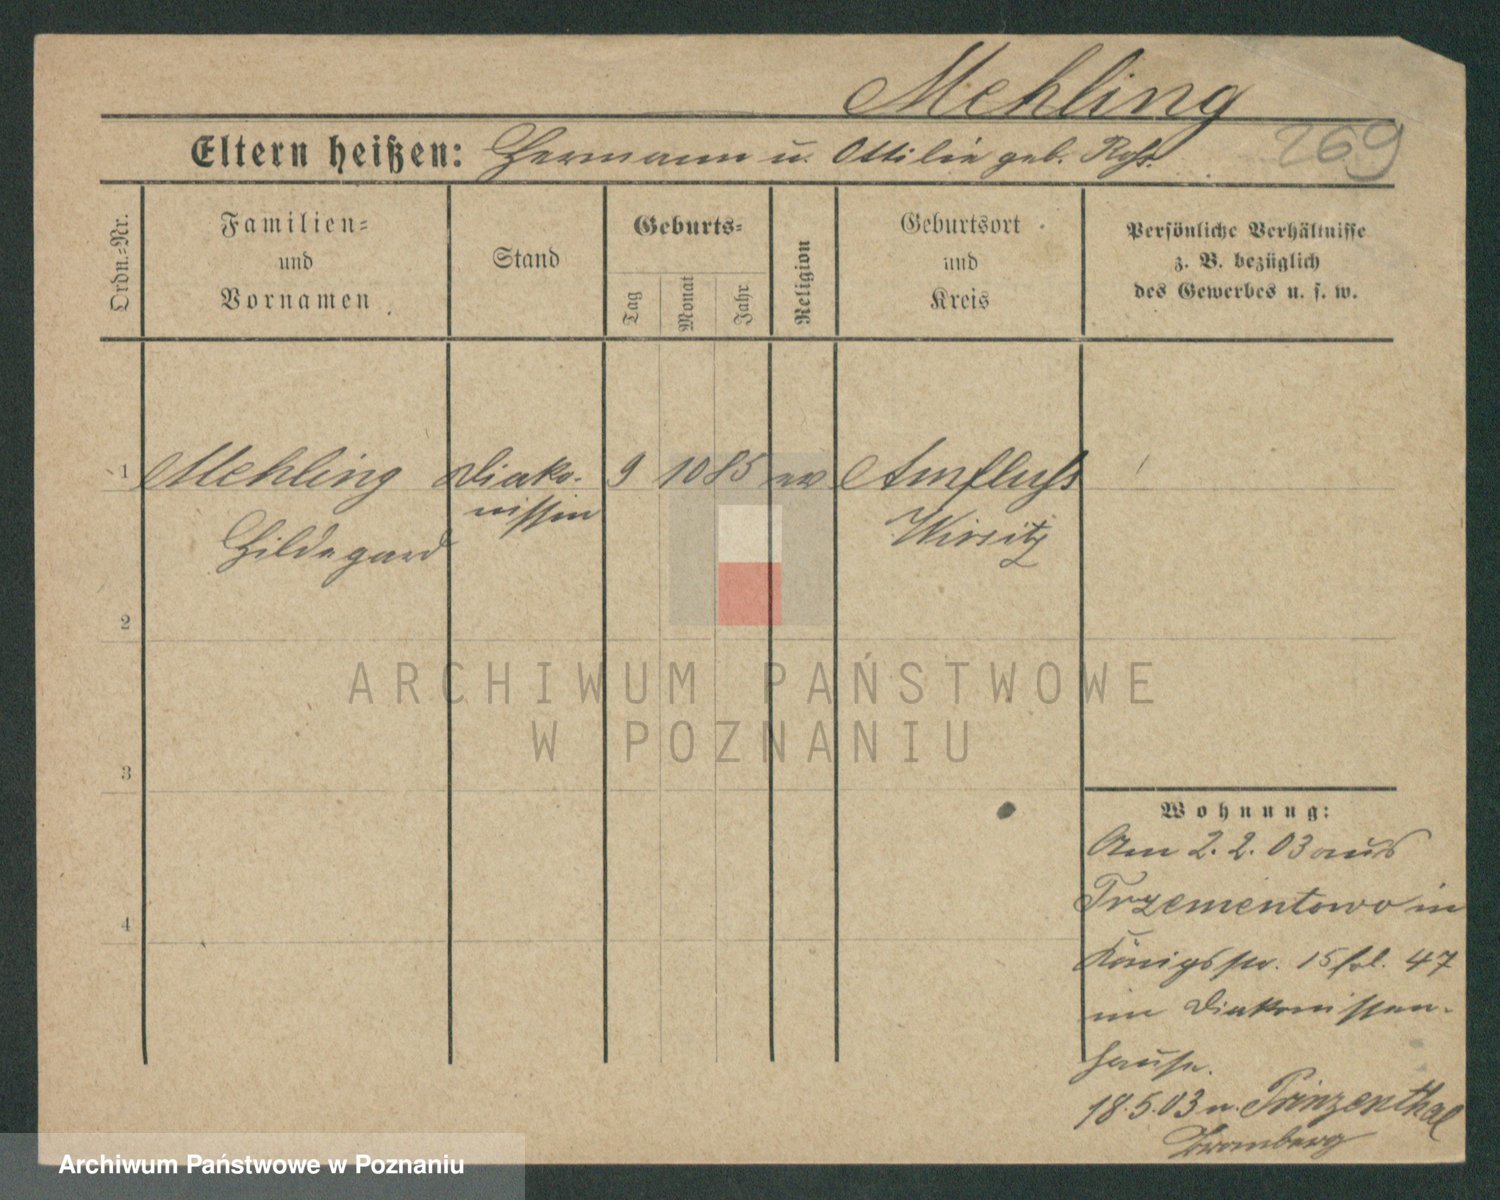 Mehling
269
Eltern heißen: Hermann u. Ottilie geb.
Ordn.-Nr.
Familien-
und
Vornamen
Stand
Geburts-
Tag
Monat
Jahr
Religion
Geburtsort
und
Kreis
Persönliche Verhältnisse
z. B. bezüglich
des Gewerbes u. s. w.
1 Mehling Diako- 9 10 85 ev Amfluß
nissin Wirsitz
Hildegard
2
3
4
ARCHIWUM PAŃSTWOWE
W POZNANIU
Wohnung:
Am 2. 2. 03 aus
Trzementowo in
Königsstr. 15 fol. 47
im Diakonissen-
hause.
18.5.03 n. Prinzenthal
Bromberg
Archiwum Państwowe w Poznaniu